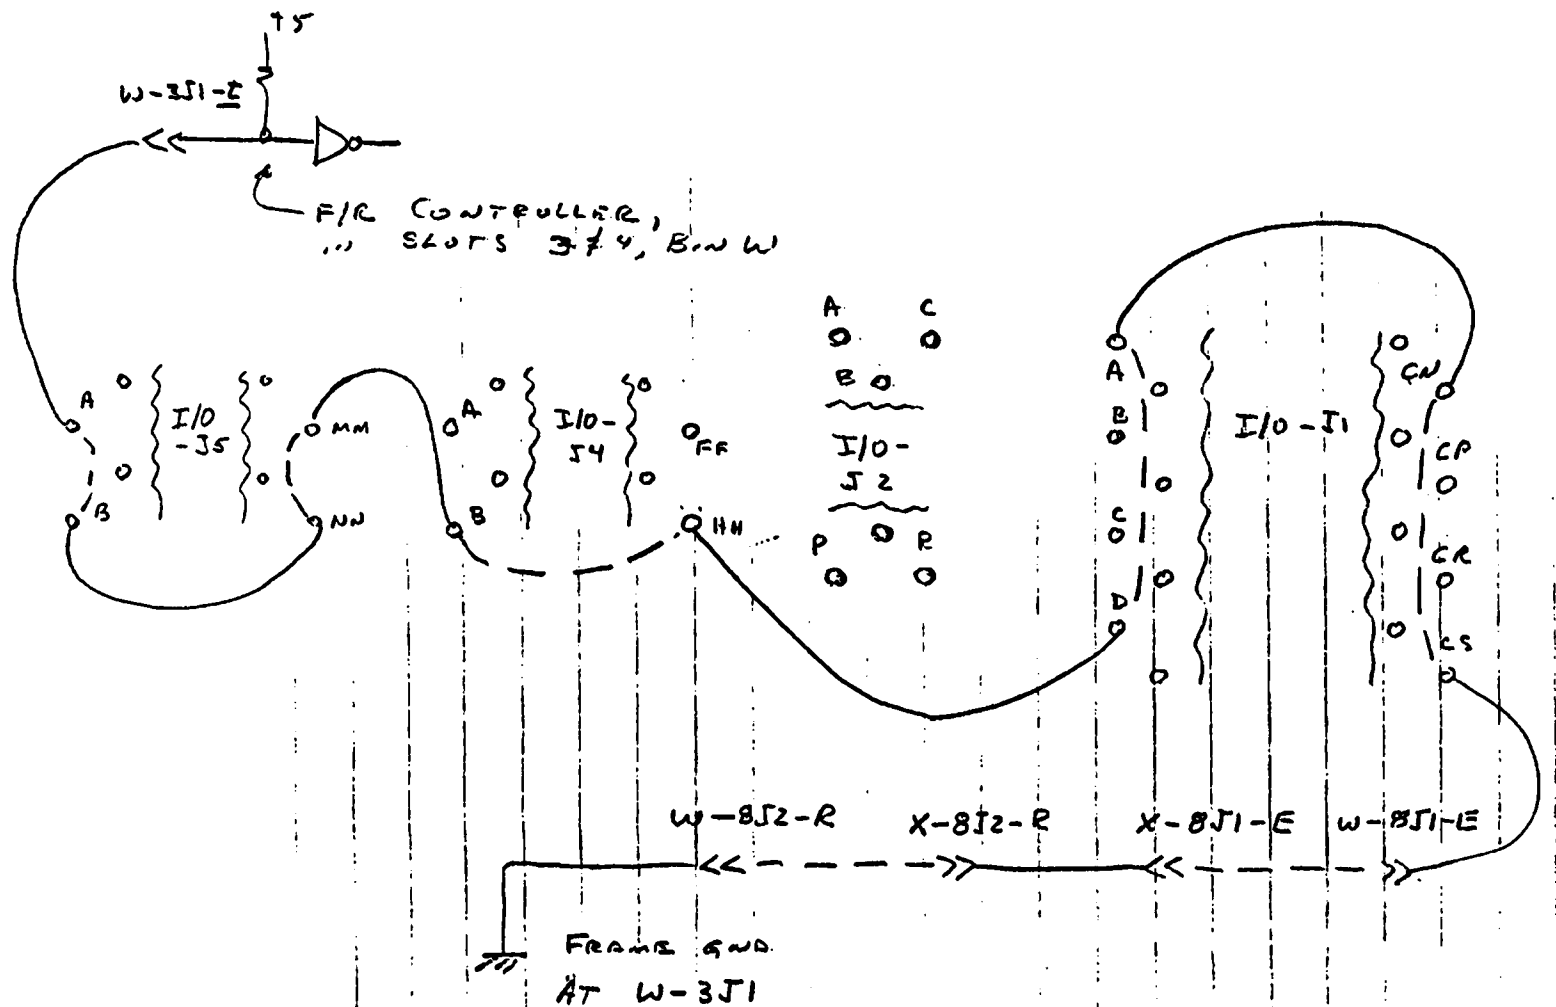 +5
W-3J1-E
F/R CONTROLLER,
SLOTS 3 & 4, BIN W
A
B
I/O
-J5
MM
NN
A
B
I/O-
J4
FF
HH
A C
B
I/O-
J2
P R
A
B
C
D
I/O-J1
CN
CP
CR
CS
W-8J2-R
X-8J2-R
X-8J1-E
W-8J1-E
FRAME GND
AT W-3J1